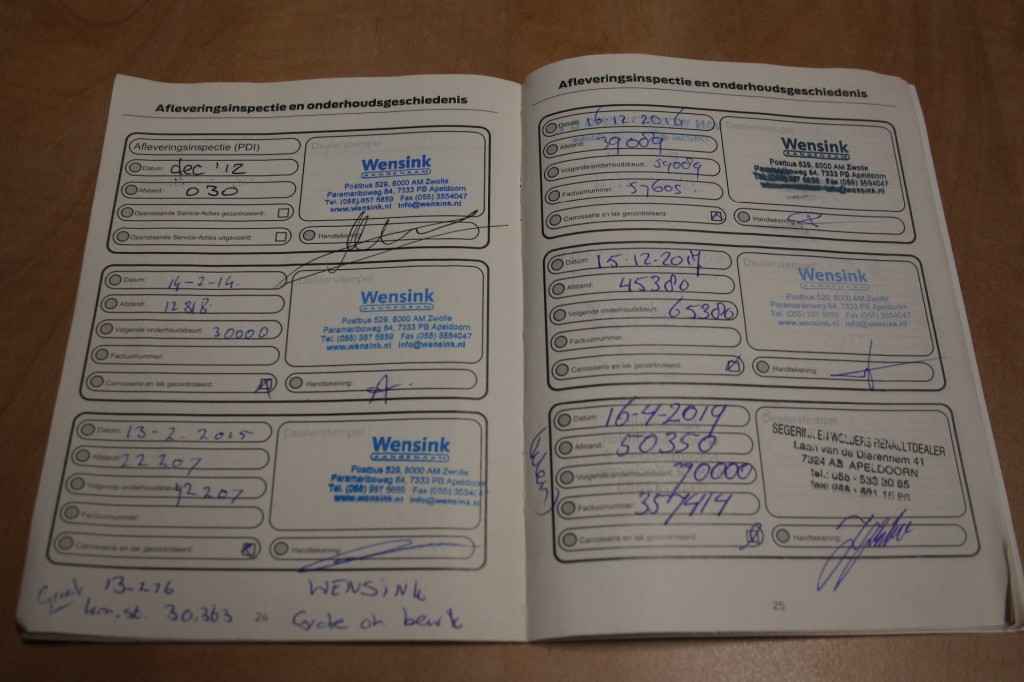 Afleveringsinspectie en onderhoudsgeschiedenis
Afleveringsinspectie (PDI)
Datum: dec '12
Afstand: 030
Openstaande Service-Acties gecontroleerd:
Openstaande Service-Acties uitgevoerd:
Dealerstempel
Wensink
Postbus 529, 8000 AM Zwolle
Paramariboweg 64, 7333 PB Apeldoorn
Tel. (055) 357 5859 Fax (055) 3554047
www.wensink.nl info@wensink.nl
Handtekening:
Datum: 14-2-14.
Afstand: 12818.
Volgende onderhoudsbeurt: 30000
Factuurnummer:
Carrosserie en lak gecontroleerd:
Wensink
Postbus 529, 8000 AM Zwolle
Paramariboweg 64, 7333 PB Apeldoorn
Tel. (055) 357 5859 Fax (055) 3554047
www.wensink.nl info@wensink.nl
Handtekening:
Datum: 13-2. 2015
Afstand: 22207
Volgende onderhoudsbeurt: 42207
Factuurnummer:
Carrosserie en lak gecontroleerd:
Dealerstempel
Wensink
Postbus 529, 8000 AM Zwolle
Paramariboweg 64, 7333 PB Apeldoorn
Tel. (055) 357 5859 Fax (055) 3554047
www.wensink.nl info@wensink.nl
Handtekening:
13-2-16 WENSINK
km.st. 30.363 Grote on beurt
Afleveringsinspectie en onderhoudsgeschiedenis
Datum: 16-12-2016
Afstand: 39009
Volgende onderhoudsbeurt: 59009
Factuurnummer: 57605
Carrosserie en lak gecontroleerd:
Wensink
Postbus 529, 8000 AM Zwolle
Paramariboweg 64, 7333 PB Apeldoorn
Handtekening:
Datum: 15-12-2017
Afstand: 45380
Volgende onderhoudsbeurt: 65380
Factuurnummer:
Carrosserie en lak gecontroleerd:
Wensink
Postbus 529, 8000 AM Zwolle
Paramariboweg 64, 7333 PB Apeldoorn
Handtekening:
Datum: 16-4-2019
Afstand: 50350
Volgende onderhoudsbeurt: 70000
Factuurnummer: 357414
Carrosserie en lak gecontroleerd:
RENAULTDEALER
Laan van de Dierenriem 41
7324 AB APELDOORN
tel.: 055 - 533 30 85
Handtekening:
25